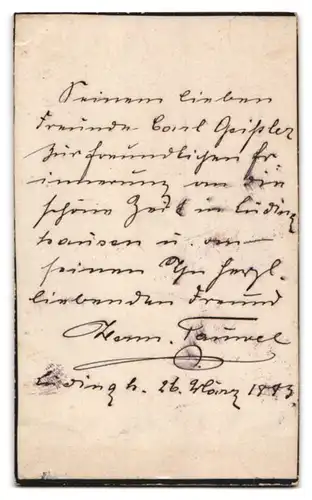 Seinem lieben
Freunde Carl Geißler
zur freundlichen Er
innerung an die
schöne Zeit in Lüding
hausen u. an
seinen Ihn herzl.
liebenden Freund
Herm.
Lüdingh. 26. März 1883.